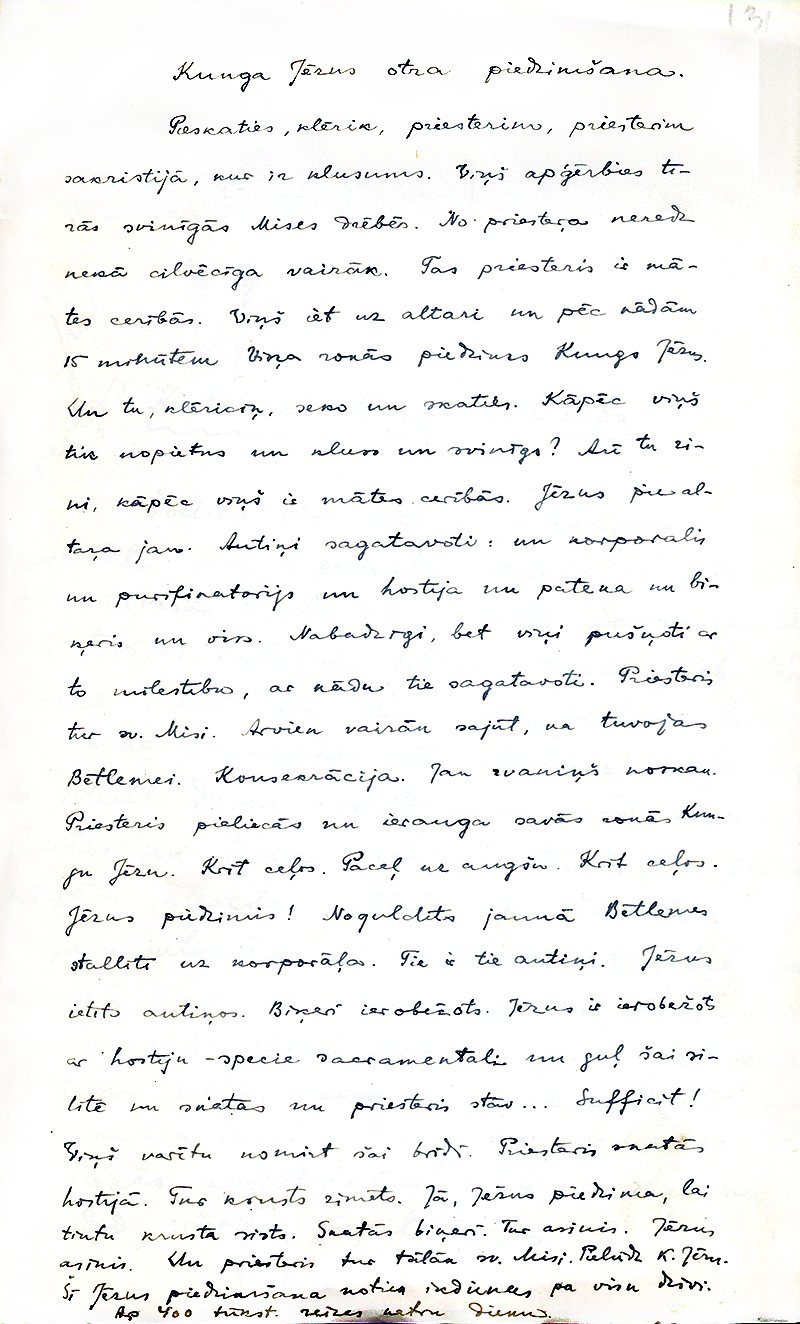 131
Kunga Jēzus otra piedzimšana.
Paskaties, klērik, priesterim, priesterim
sakristijā, kur ir klusums. Viņš apģērbies tī-
rās svinīgās Mises drēbēs. No priesteŗa neredz
nekā cilvēcīga vairāk. Tas priesteris ir mā-
tes cerībās. Viņš iet uz altari un pēc kādām
15 minūtēm Viņa rokās piedzims Kungs Jēzus.
Un tu, klēriciņ, seko un skaties. Kāpēc viņš
tik nopietns un kluss un svinīgs? Arī tu zi-
ni, kāpēc viņš ir mātes cerībās. Jēzus pie al-
taŗa jau. Autiņi sagatavoti: un korporalis
un purifikatorijs un hostija un patena un bi-
ķeris un vīns. Nabadzīgi, bet viņi pušķoti ar
to mīlestību, ar kādu tie sagatavoti. Priesteris
tur sv. Misi. Arvien vairāk sajūt, ka tuvojas
Bētlemei. Konsekrācija. Jau zvaniņš noskan.
Priesteris pieliecās un ierauga savās rokās Kun-
gu Jēzu. Krīt ceļos. Paceļ uz augšu. Krīt ceļos.
Jēzus piedzimis! Noguldīts jaunā Bētlemes
stallītī uz korporāļa. Tie ir tie autiņi. Jēzus
ietīts autiņos. Biķerī ierobežots. Jēzus ir ierobežots
ar hostiju - specie sacramentali un guļ šai si-
lītē un skatās un priesteris stāv... Sufficit!
Viņš varētu nomirt šai brīdī. Priesteris skatās
hostijā. Tur krusts zīmēts. Jā, Jēzus piedzima, lai
tiktu krustā sists. Skatās biķerī. Tur asinis. Jēzus
asinis. Un priesteris tur tālāk sv. Misi. Palūdz K. Jēzu.
Šī Jēzus piedzimšana notiek ikdienas pa visu dzīvi.
Ap 400 tūkst. reizes katru dienu.